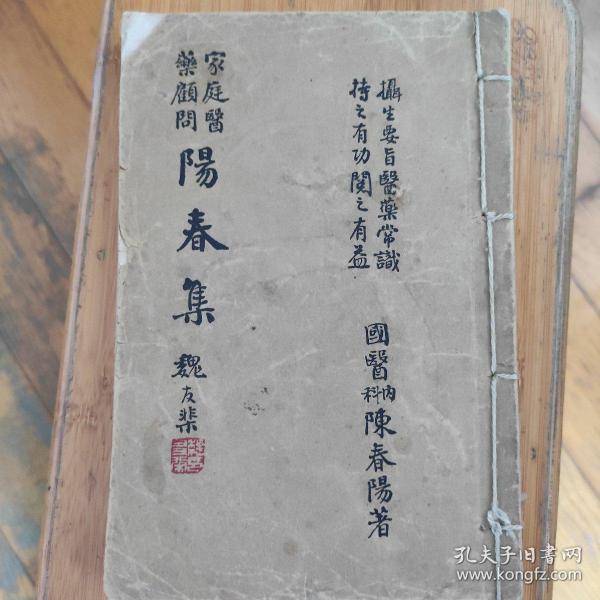 攝生要旨醫藥常識
持之有功閱之有益
國醫內科陳春陽著
家庭醫
藥顧問
陽春集
魏友棐
孔夫子旧书网
www.kongfz.com